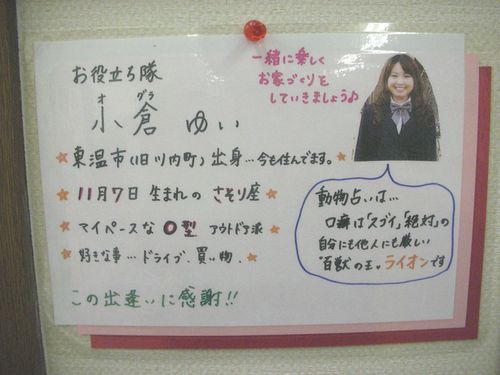 お役立ち隊
オ グラ
小倉 ゆい
一緒に楽しく
お家づくりを
していきましょう♪
★東温市(旧川内町)出身…今も住んでます。★
★11月7日 生まれの さそり座★
★マイペースな O型 アウトドア派★
★好きな事…ドライブ、買い物、★
この出逢いに感謝!!
動物占いは…
口癖は「スゴイ」「絶対」の
自分にも他人にも厳しい
"百獣の王。ライオンです